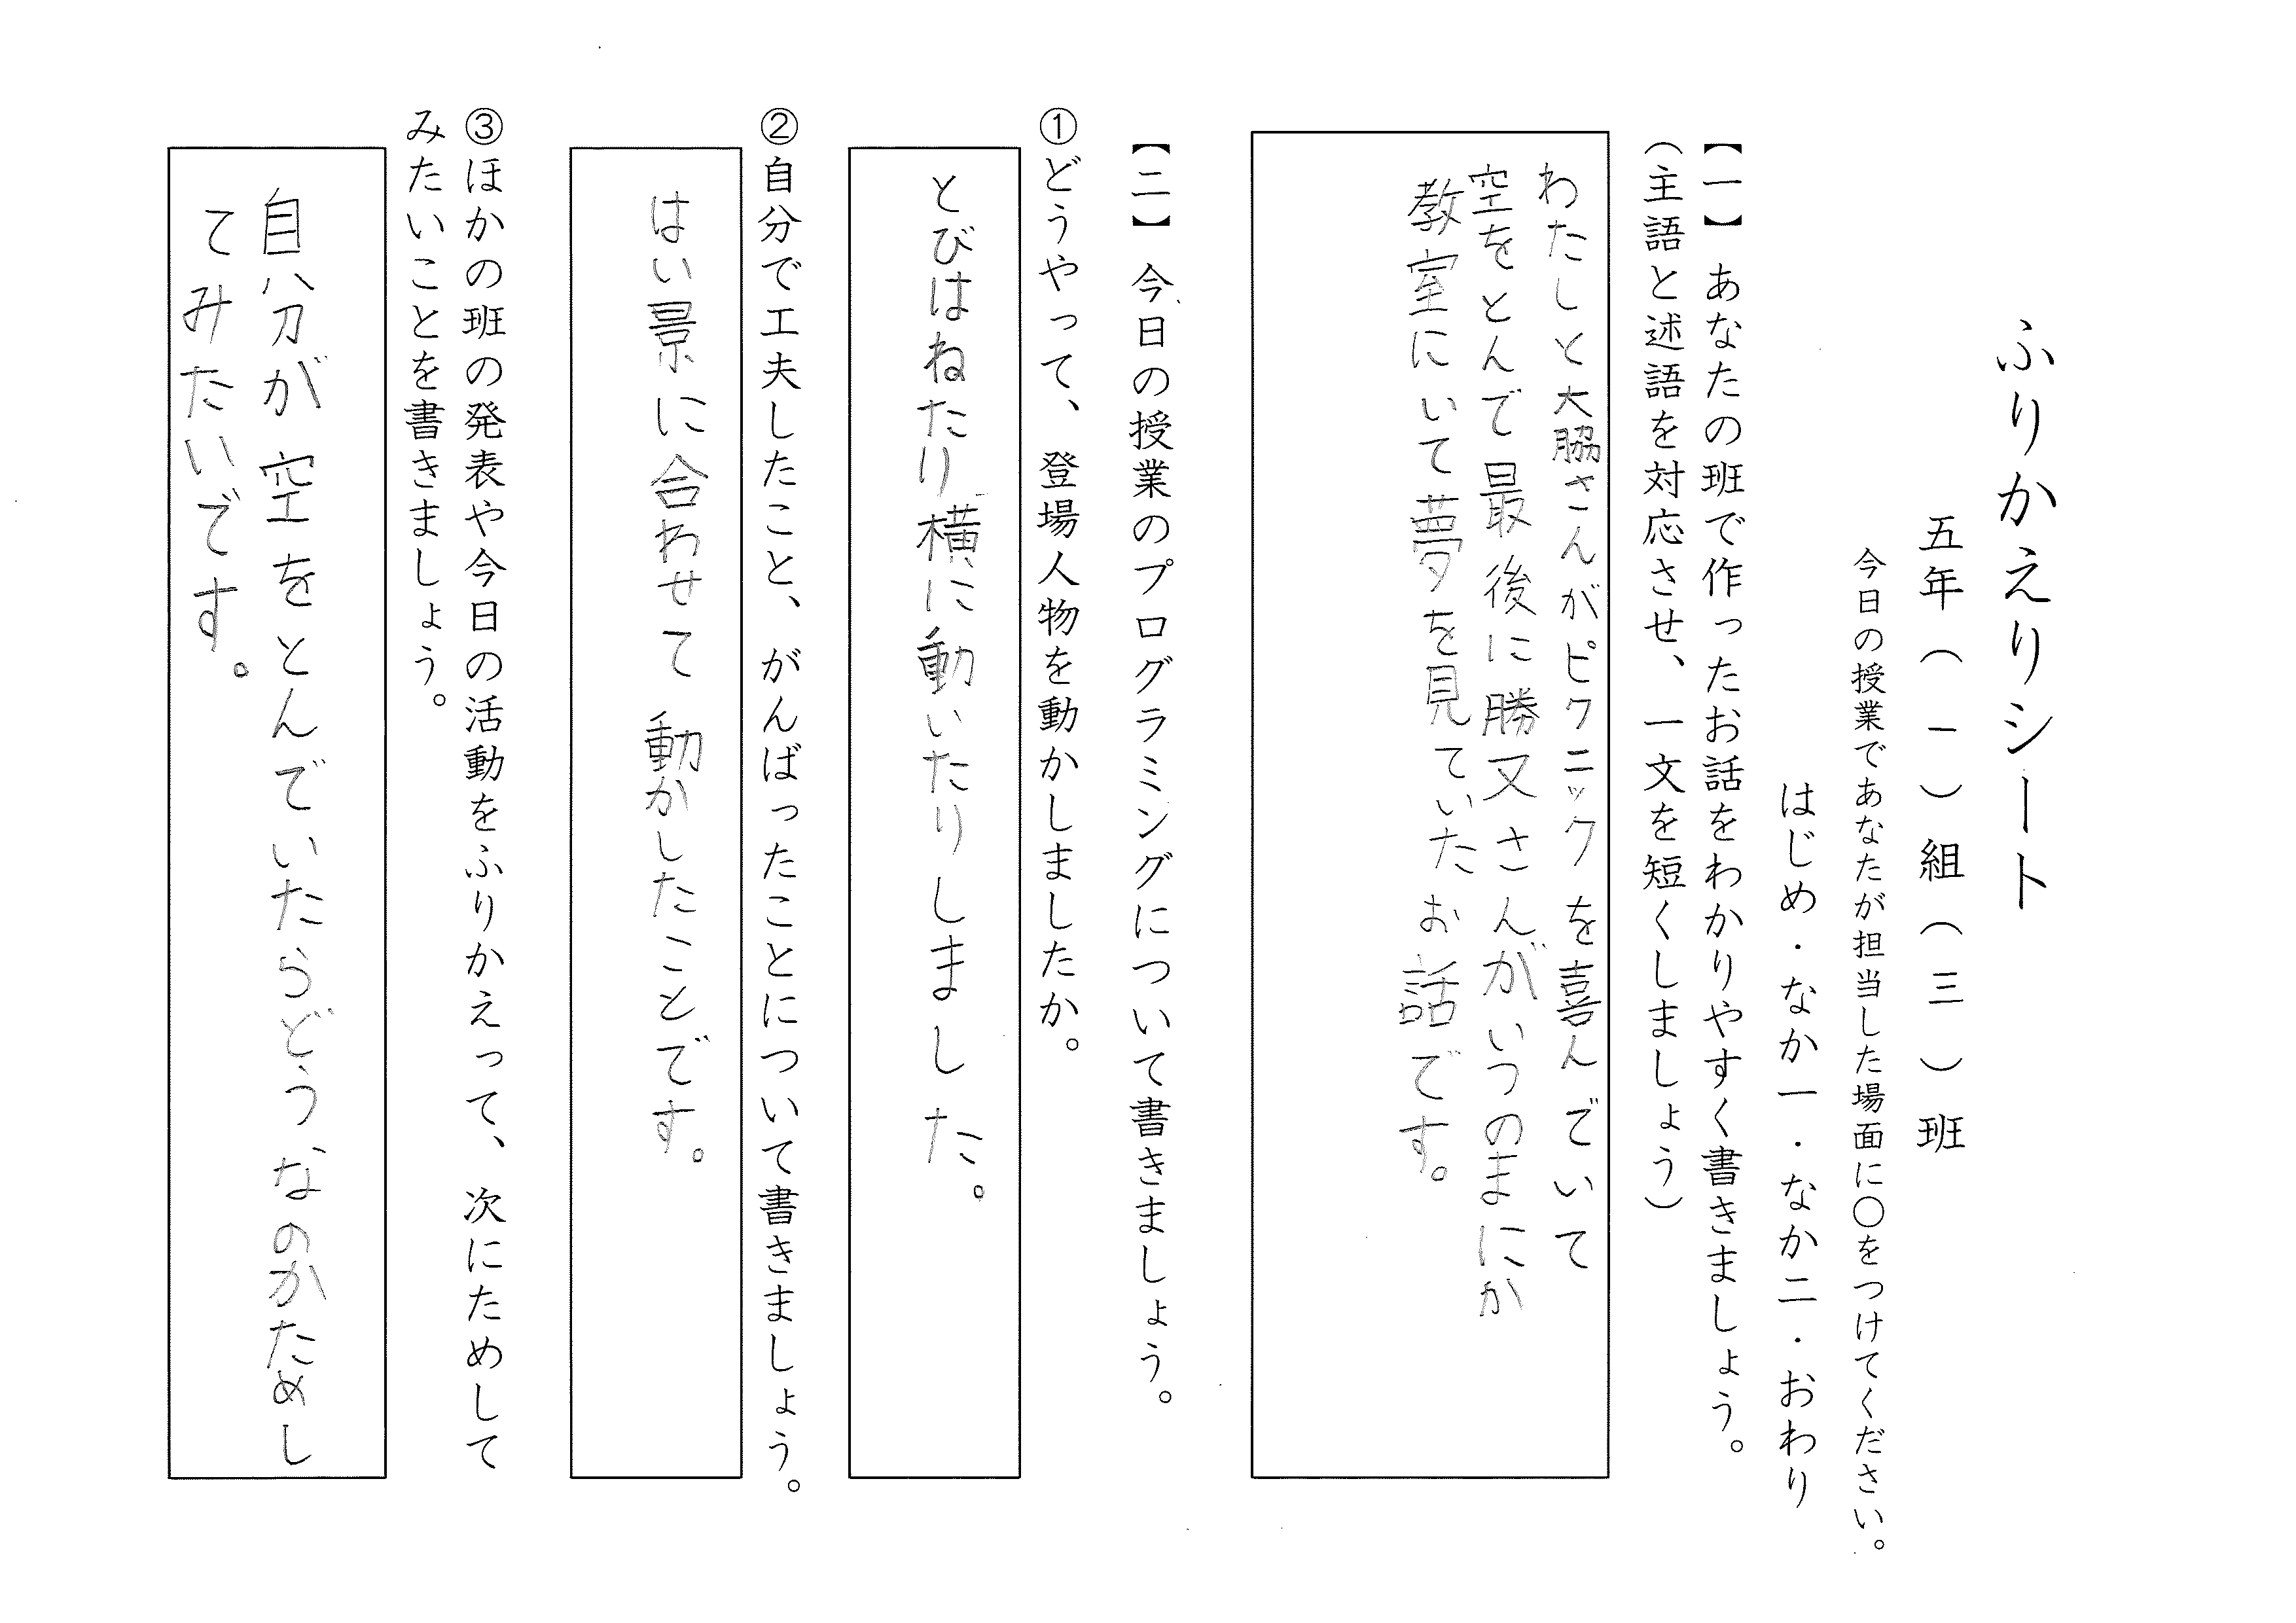 ふりかえりシート
五年（一）組（三）班
今日の授業であなたが担当した場面に○をつけてください。
はじめ・なか一・なか二・おわり
【一】あなたの班で作ったお話をわかりやすく書きましょう。
（主語と述語を対応させ、一文を短くしましょう）
わたしと大脇さんがピクニックを喜んでいて
空をとんで最後に勝又さんがいつのまにか
教室にいて夢を見ていたお話です。
【二】今日の授業のプログラミングについて書きましょう。
①どうやって、登場人物を動かしましたか。
とびはねたり横に動いたりしました。
②自分で工夫したこと、がんばったことについて書きましょう。
はい景に合わせて動かしたことです。
③ほかの班の発表や今日の活動をふりかえって、次にためして
みたいことを書きましょう。
自分が空をとんでいたらどうなのかためし
てみたいです。